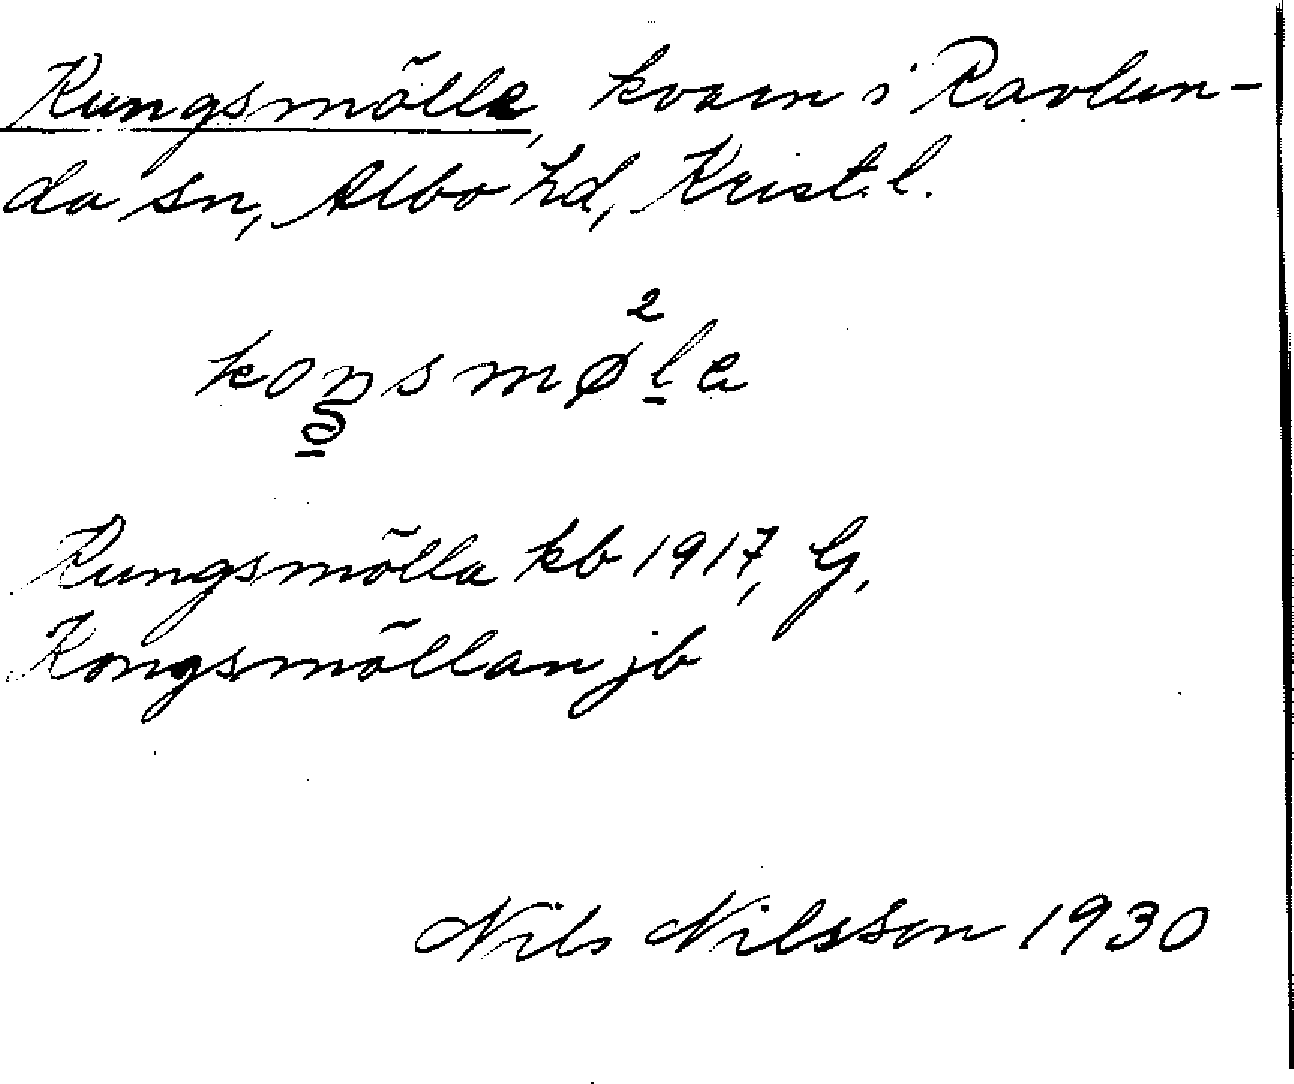 Kungsmölle, kvarn i Ravlun-
da sn, Albo hd, Krist. l.
Kungsmölla kb 1917, G,
Kongsmöllan jb
Nils Nilsson 1930